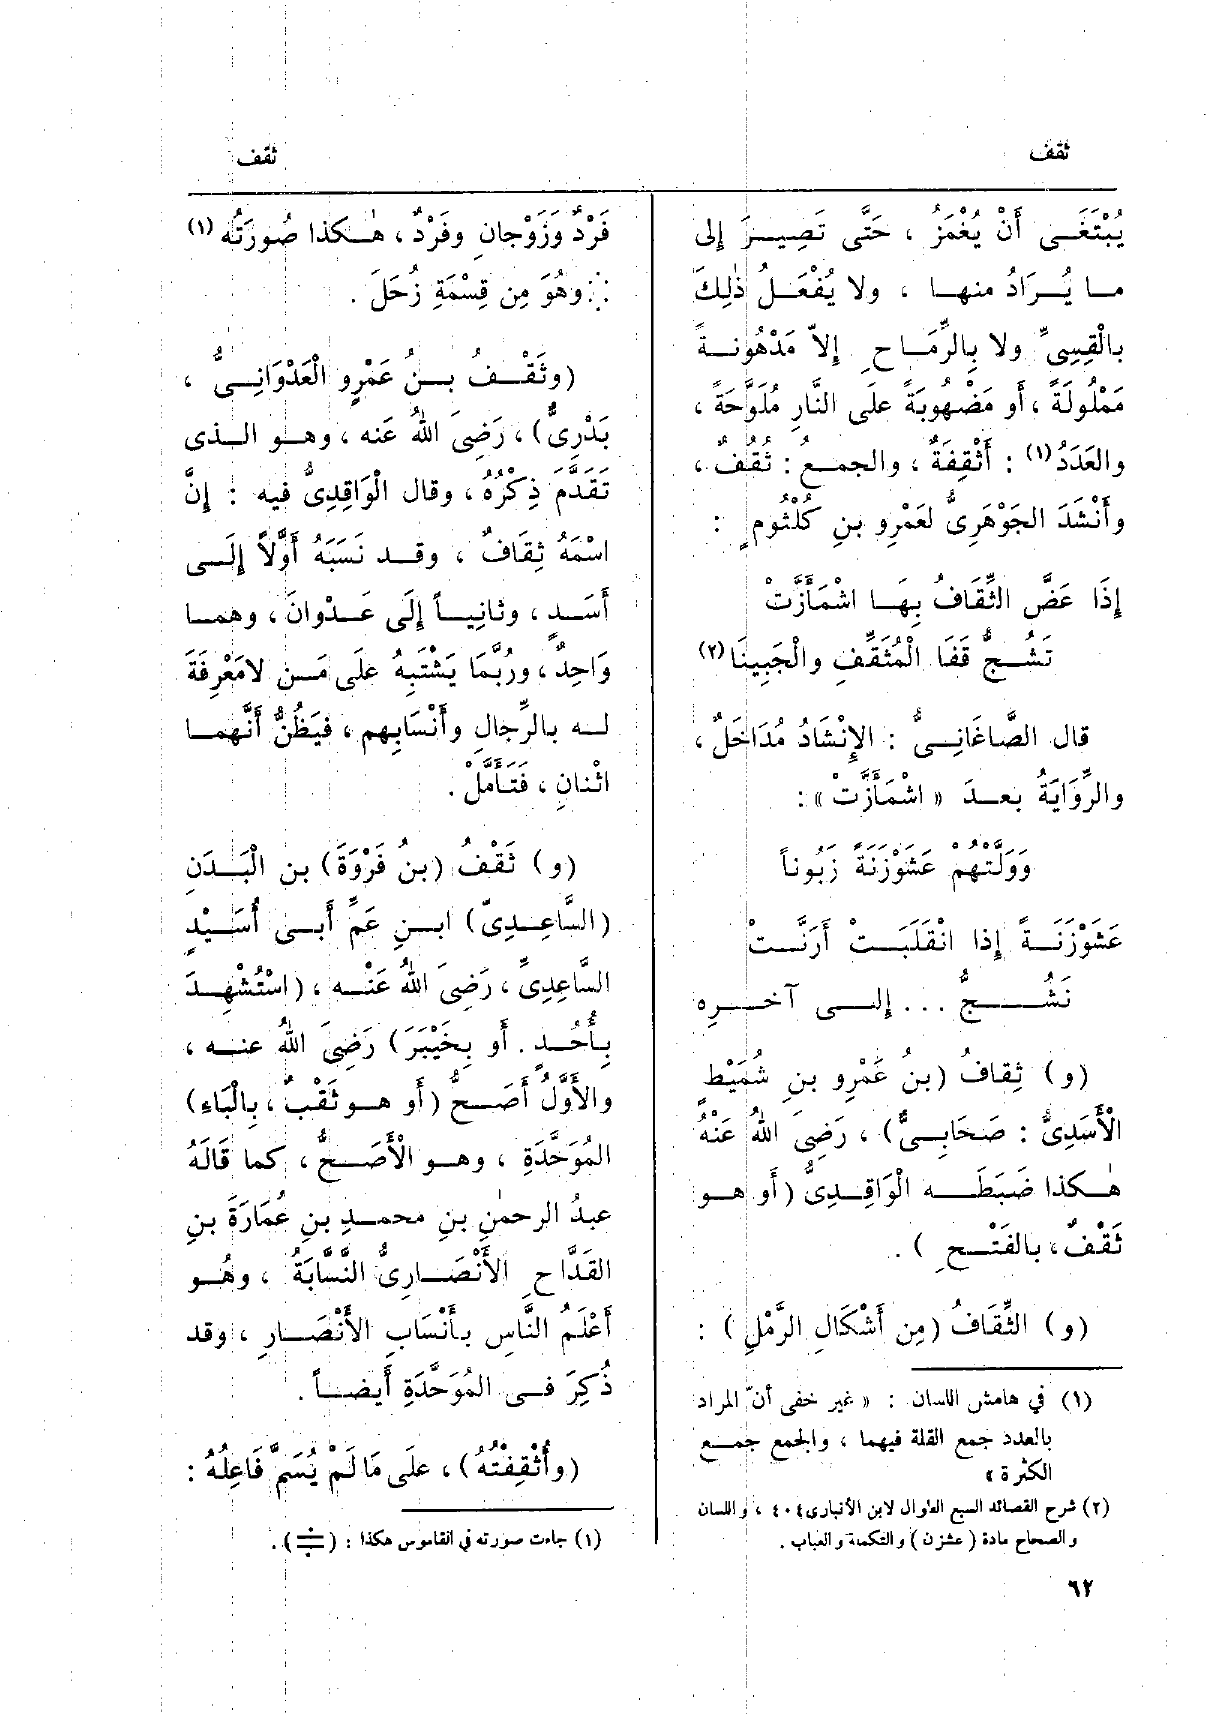 ثقف
ثقف
يُبْتَغَى أَنْ يُغْمَزُ ، حَتَّى تَصِيرَ إلى
ما يُرَادُ منها ، ولا يُفْعَلُ ذٰلِكَ
بالْقِسِىِّ ولا بِالرِّمَاحِ إلاّ مَدْهُونةً
مَمْلُولَةً ، أَو مَضْهُوبَةً علَى النَّارِ مُلَوَّحَةً ،
والعَدَدُ(١) : أَثْقِفَةٌ ، والجمع : ثُقُفٌ ،
وأَنْشَدَ الجَوْهَرِىُّ لعَمْرِو بنِ كُلْثُومٍ :
إذَا عَضَّ الثِّقَافُ بِهَا اشْمَأَزَّتْ
تَشُجُّ قَفَا الْمُثَقِّفِ والْجَبِينَا(٢)
قال الصَّاغَانِىُّ : الإِنْشَادُ مُدَاخَلٌ ،
والرِّوَايَةُ بعدَ « اشْمَأَزَّتْ » :
وَوَلَّتْهُمْ عَشَوْزَنَةً زَبُوناً
عَشَوْزَنَةً إذا انْقَلَبَتْ أَرَنَّتْ
تَشُجُّ ... إلى آخرِه
(و) ثِقافُ (بنُ عَمْرِو بنِ شُمَيْطٍ
الْأَسَدِىُّ : صَحَابِىٌّ) ، رَضِىَ اللهُ عَنْهُ
هٰكذا ضَبَطَه الْوَاقِدِىُّ (أَو هو
ثَقْفٌ، بالفَتْحِ ) .
(و) الثِّقَافُ (مِن أَشْكَالِ الرَّمْلِ) :
(١) في هامش اللسان : « غير خفى أنّ المراد
بالعدد جمع القلة فيهما ، والجمع جمع
الكثرة »
(٢) شرح القصائد السبع الطوال لابن الأنبارى ٤٠٤ ، واللسان
والصحاح مادة ( عشزن ) والتكملة والعباب .
٦٢
فَرْدٌ وَزَوْجانِ وفَرْدٌ ، هٰكذا صُورَتُه(١)
وهُوَ مِن قِسْمَةِ زُحَلَ .
(وثَقْفُ بنُ عَمْرٍو الْعَدْوَانِىُّ ،
بَدْرِىٌّ) ، رَضِىَ اللهُ عَنه ، وهو الذى
تَقَدَّمَ ذِكْرُهُ ، وقال الْوَاقِدِىُّ فيه : إنَّ
اسْمَهُ ثِقَافٌ ، وقد نَسَبَهُ أَوَّلاً إلَى
أَسَدٍ ، وثانِياً إلَى عَدْوانَ ، وهما
وَاحِدٌ ، ورُبَّمَا يَشْتَبِهُ علَى مَن لامَعْرِفَةَ
له بالرِّجالِ وأَنْسَابِهم ، فيَظُنُّ أَنَّهما
اثْنانِ ، فَتَأَمَّلْ .
(و) ثَقْفُ (بنُ فَرْوَةَ) بن الْبَدَنِ
(السَّاعِدِىّ) ابنِ عَمِّ أَبى أُسَيْدٍ
السَّاعِدِىِّ ، رَضِىَ اللهُ عَنْه ، (اسْتُشْهِدَ
بِأُحُدٍ . أَو بِخَيْبَرَ) رَضِىَ اللهُ عنه ،
والأَوَّلُ أَصَحُّ (أَو هو ثَقْبٌ ، بِالْبَاءِ)
المُوَحَّدَةِ ، وهو الْأَصَحُّ ، كما قَالَهُ
عبدُ الرحمٰنِ بنِ محمدِ بنِ عُمَارَةَ بنِ
القَدَّاحِ الأَنْصَارِىُّ النَّسَّابَةُ ، وهُو
أَعْلَمُ النَّاسِ بأَنْسَابِ الأَنْصَارِ ، وقد
ذُكِرَ فى المُوَحَّدَةِ أَيضاً .
(وأُثْقِفْتُهُ) ، علَى مَا لَمْ يُسَمَّ فَاعِلُهُ :
(١) جاءت صورته في القاموس هكذا : ( ) .